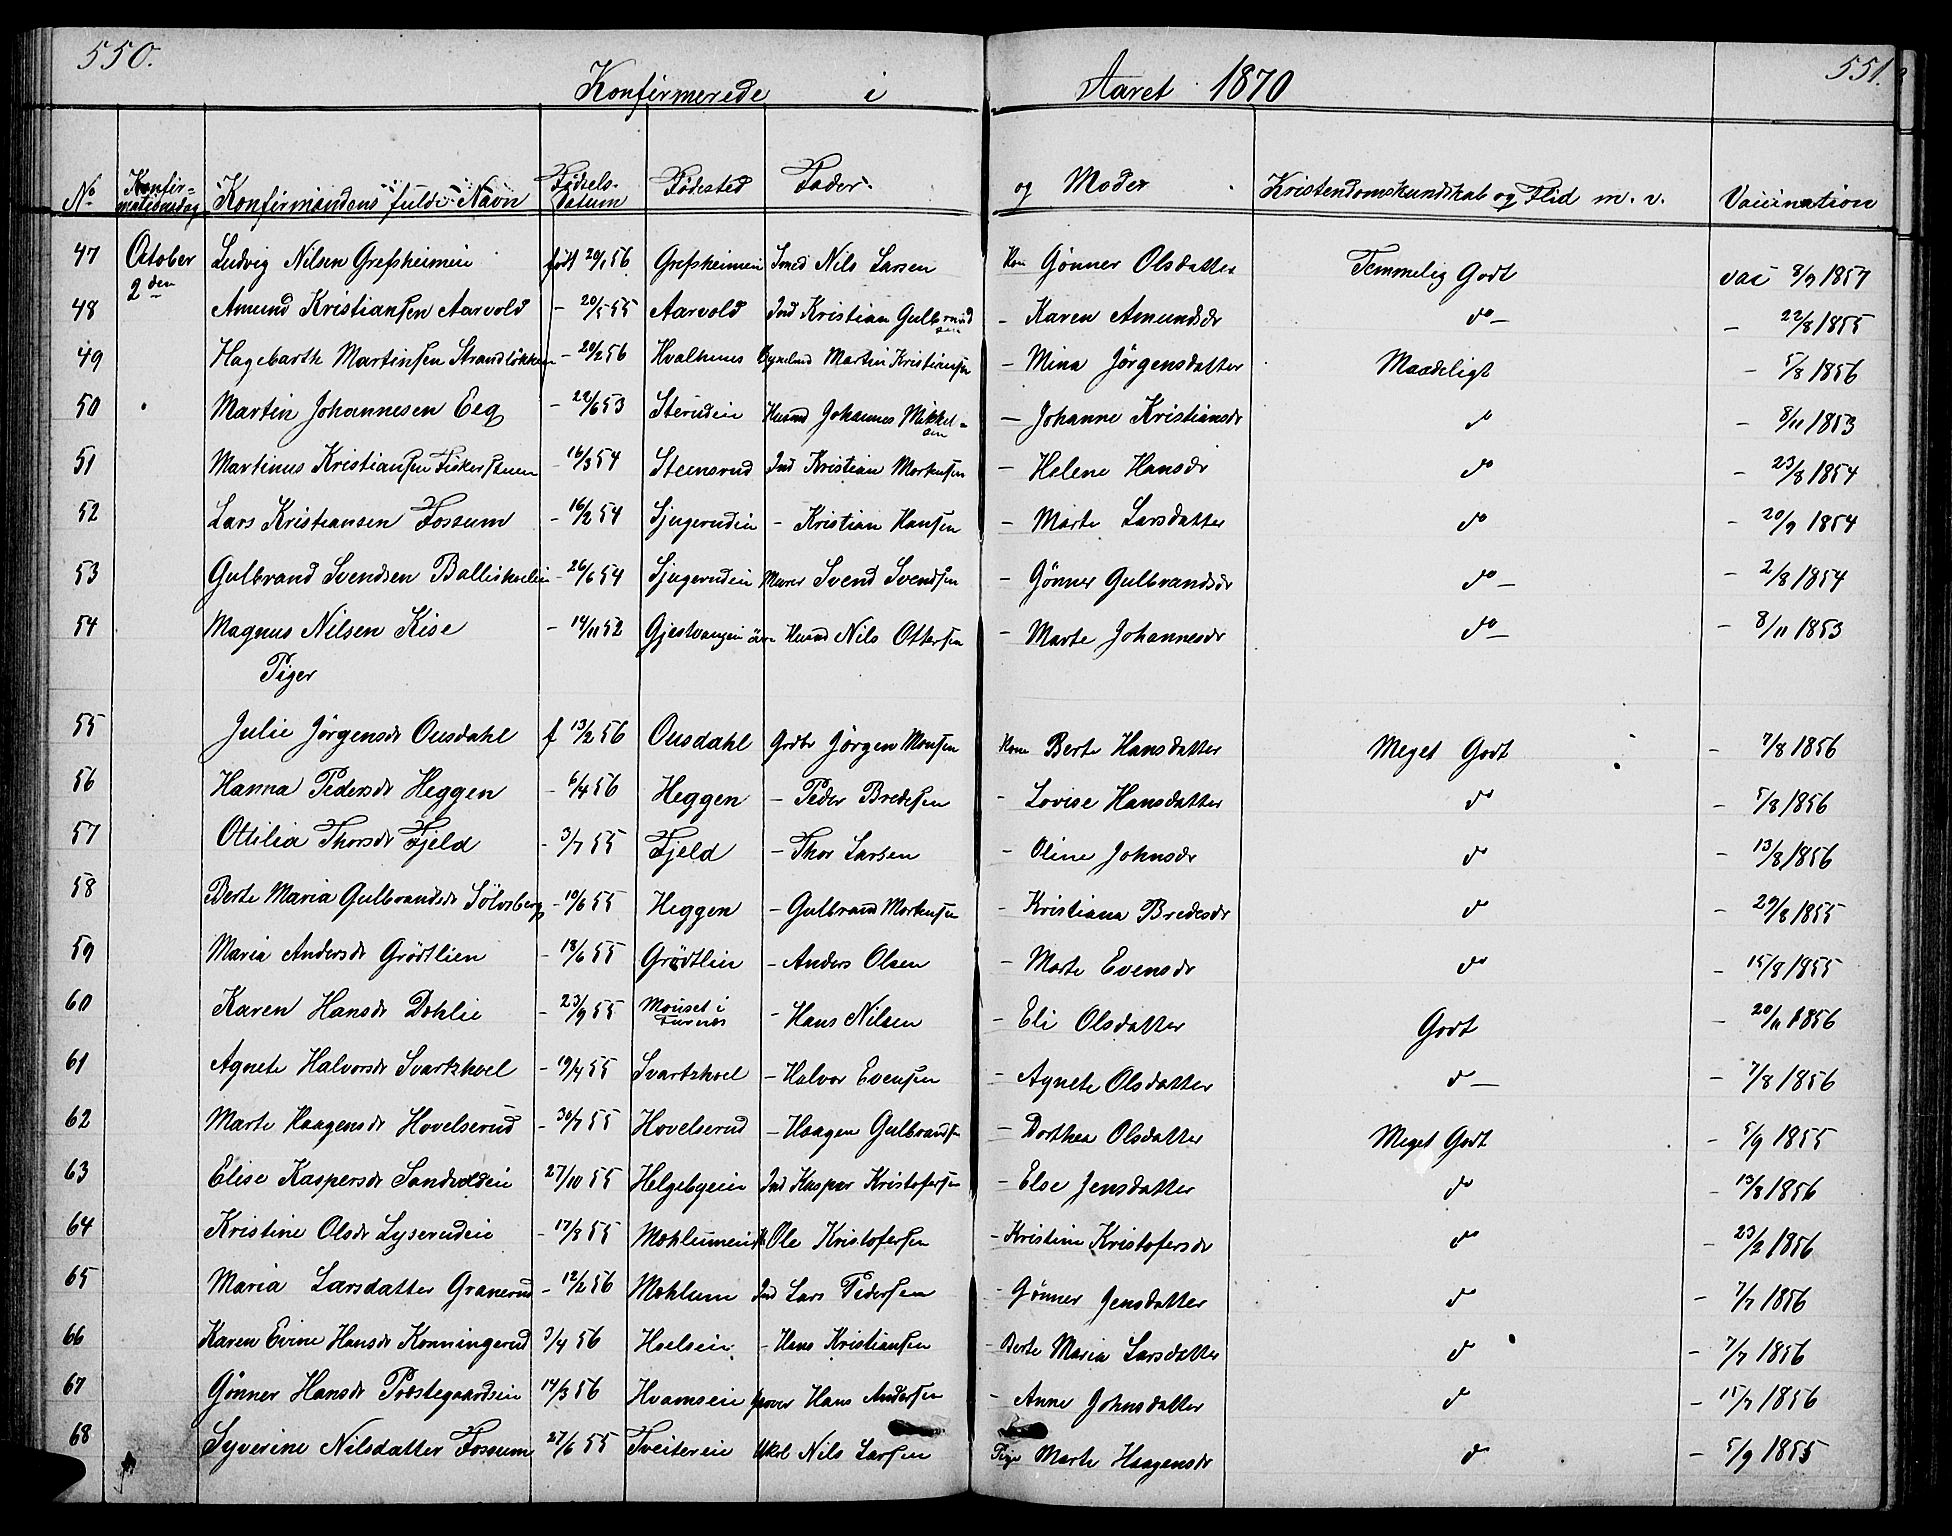 550. 551.
Konfirmerede i Aaret 1870
No Konfirmationsdag Konfirmandens fulde Navn Fødsels-datum Fødested Fader og Moder Kristendomskundskab og Flid m. v. Vaccination
47 October 2den Ludvig Nilsen Grefsheimeie født 20/1 56 Grefsheimeie Smed Nils Larsen Kone Gønner Olsdatter Temmelig Godt vac 8/9 1857
48 Amund Kristiansen Aarvold - 20/5 55 Aarvold Ind Kristian Gulbrandsen - Karen Amundsdr do - 22/8 1855
49 Hagebarth Martinsen Strandløkken - 20/2 56 Hvalhenes Martin Kristiansen - Mina Jørgensdatter Maadeligt - 5/8 1856
50 Martin Johannesen Eeg - 22/6 53 Husmd Johannes Mikkelsen - Johanne Kristiansdr do - 8/11 1853
51 Martinus Kristiansen Fiskerstuen - 16/3 54 Steensrud Ind Kristian Mortensen - Helene Hansdr do - 23/8 1854
52 Lars Kristiansen Fossum - 16/2 54 Sjugerudeie - Kristian Hansen - Marte Larsdatter do - 20/9 1854
53 Gulbrand Svendsen Ballisholeie - 26/6 54 Sjugerudeie Murer Svend Svendsen - Gønner Gulbrandsdr do - 2/8 1854
54 Magnus Nilsen Kise - 14/11 52 Gjestvangeie øvre Husmd Nils Ottersen - Marte Johannesdr do - 8/11 1853
Piger
55 Julie Jørgensdr Ousdahl f 13/2 56 Ousdahl Gdbr Jørgen Monsen Kone Berte Hansdatter Meget Godt - 7/8 1856
56 Hanna Pedersdr Heggen - 6/4 56 Heggen - Peder Bredesen - Lovise Hansdatter do - 5/8 1856
57 Ottilia Thorsdr Fjeld - 3/7 55 Fjeld - Thor Larsen - Oline Johnsdr do - 13/8 1856
58 Berte Maria Gulbrandsdr Sølvsberg - 10/6 55 Heggen - Gulbrand Mortensen - Kristiana Bredesdr do - 29/8 1855
59 Maria Andersdr Grødtlien - 18/6 55 Grødtlien - Anders Olsen - Marte Evensdr do - 15/8 1855
60 Karen Hansdr Dehlie - 23/9 55 Mouset i Furnes - Hans Nilsen - Eli Olsdatter Godt - 20/11 1856
61 Agnete Halvorsdr Svartshoel - 19/4 55 Svartshoel - Halvor Evensen - Agnete Olsdatter do - 7/8 1856
62 Marte Haagensdr Hovelsrud - 30/7 55 Hovelserud - Haagen Gulbrandsen - Dorthea Olsdatter Meget Godt - 5/9 1855
63 Elise Kaspersdr Sandvoldeie 27/10 55 Helgebyeie Ind Kasper Kristofersen - Else Jensdatter do - 13/8 1856
64 Kristine Olsdr Lyserudeie - 17/8 55 Mæhlumeie Ole Kristofersen - Kristine Kristofersdr do - 23/2 1856
65 Maria Larsdatter Granerud - 12/2 56 Mæhlum Ind Lars Pedersen - Gønner Jensdatter do - 7/7 1856
66 Karen Evine Hansdr Konningerud 3/4 56 Hoelseie - Hans Kristiansen - Berte Maria Larsdatter do - 7/7 1856
67 Gønner Hansdr Præstegaardseie 14/3 56 Hvamseie Hans Andersen - Anne Johnsdatter do - 15/7 1856
68 Syverine Nilsdatter Fossum 27/6 55 Tveitereie Ukrl Nils Larsen Pige Marte Haagensdr do - 5/9 1855